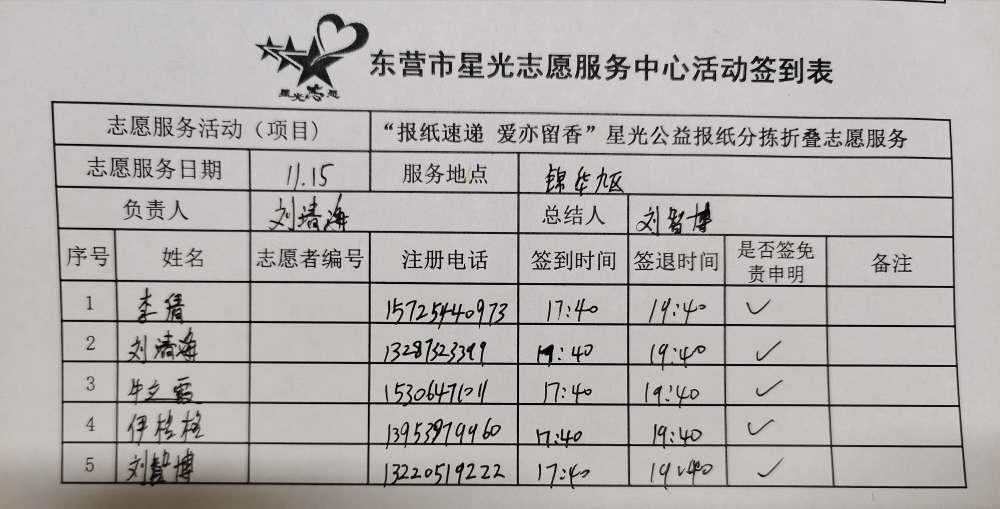 星光志愿
东营市星光志愿服务中心活动签到表
志愿服务活动（项目） “报纸速递 爱亦留香”星光公益报纸分拣折叠志愿服务
志愿服务日期 11.15 服务地点 锦华九区
负责人 刘清海 总结人 刘智博
序号 姓名 志愿者编号 注册电话 签到时间 签退时间 是否签免责申明 备注
1 李倩 15725440973 17:40 19:40 ✓
2 刘清海 13287323399 17:40 19:40 ✓
3 牛立霞 15306471011 17:40 19:40 ✓
4 伊格格 13953879960 17:40 19:40 ✓
5 刘智博 13220519222 17:40 19:40 ✓